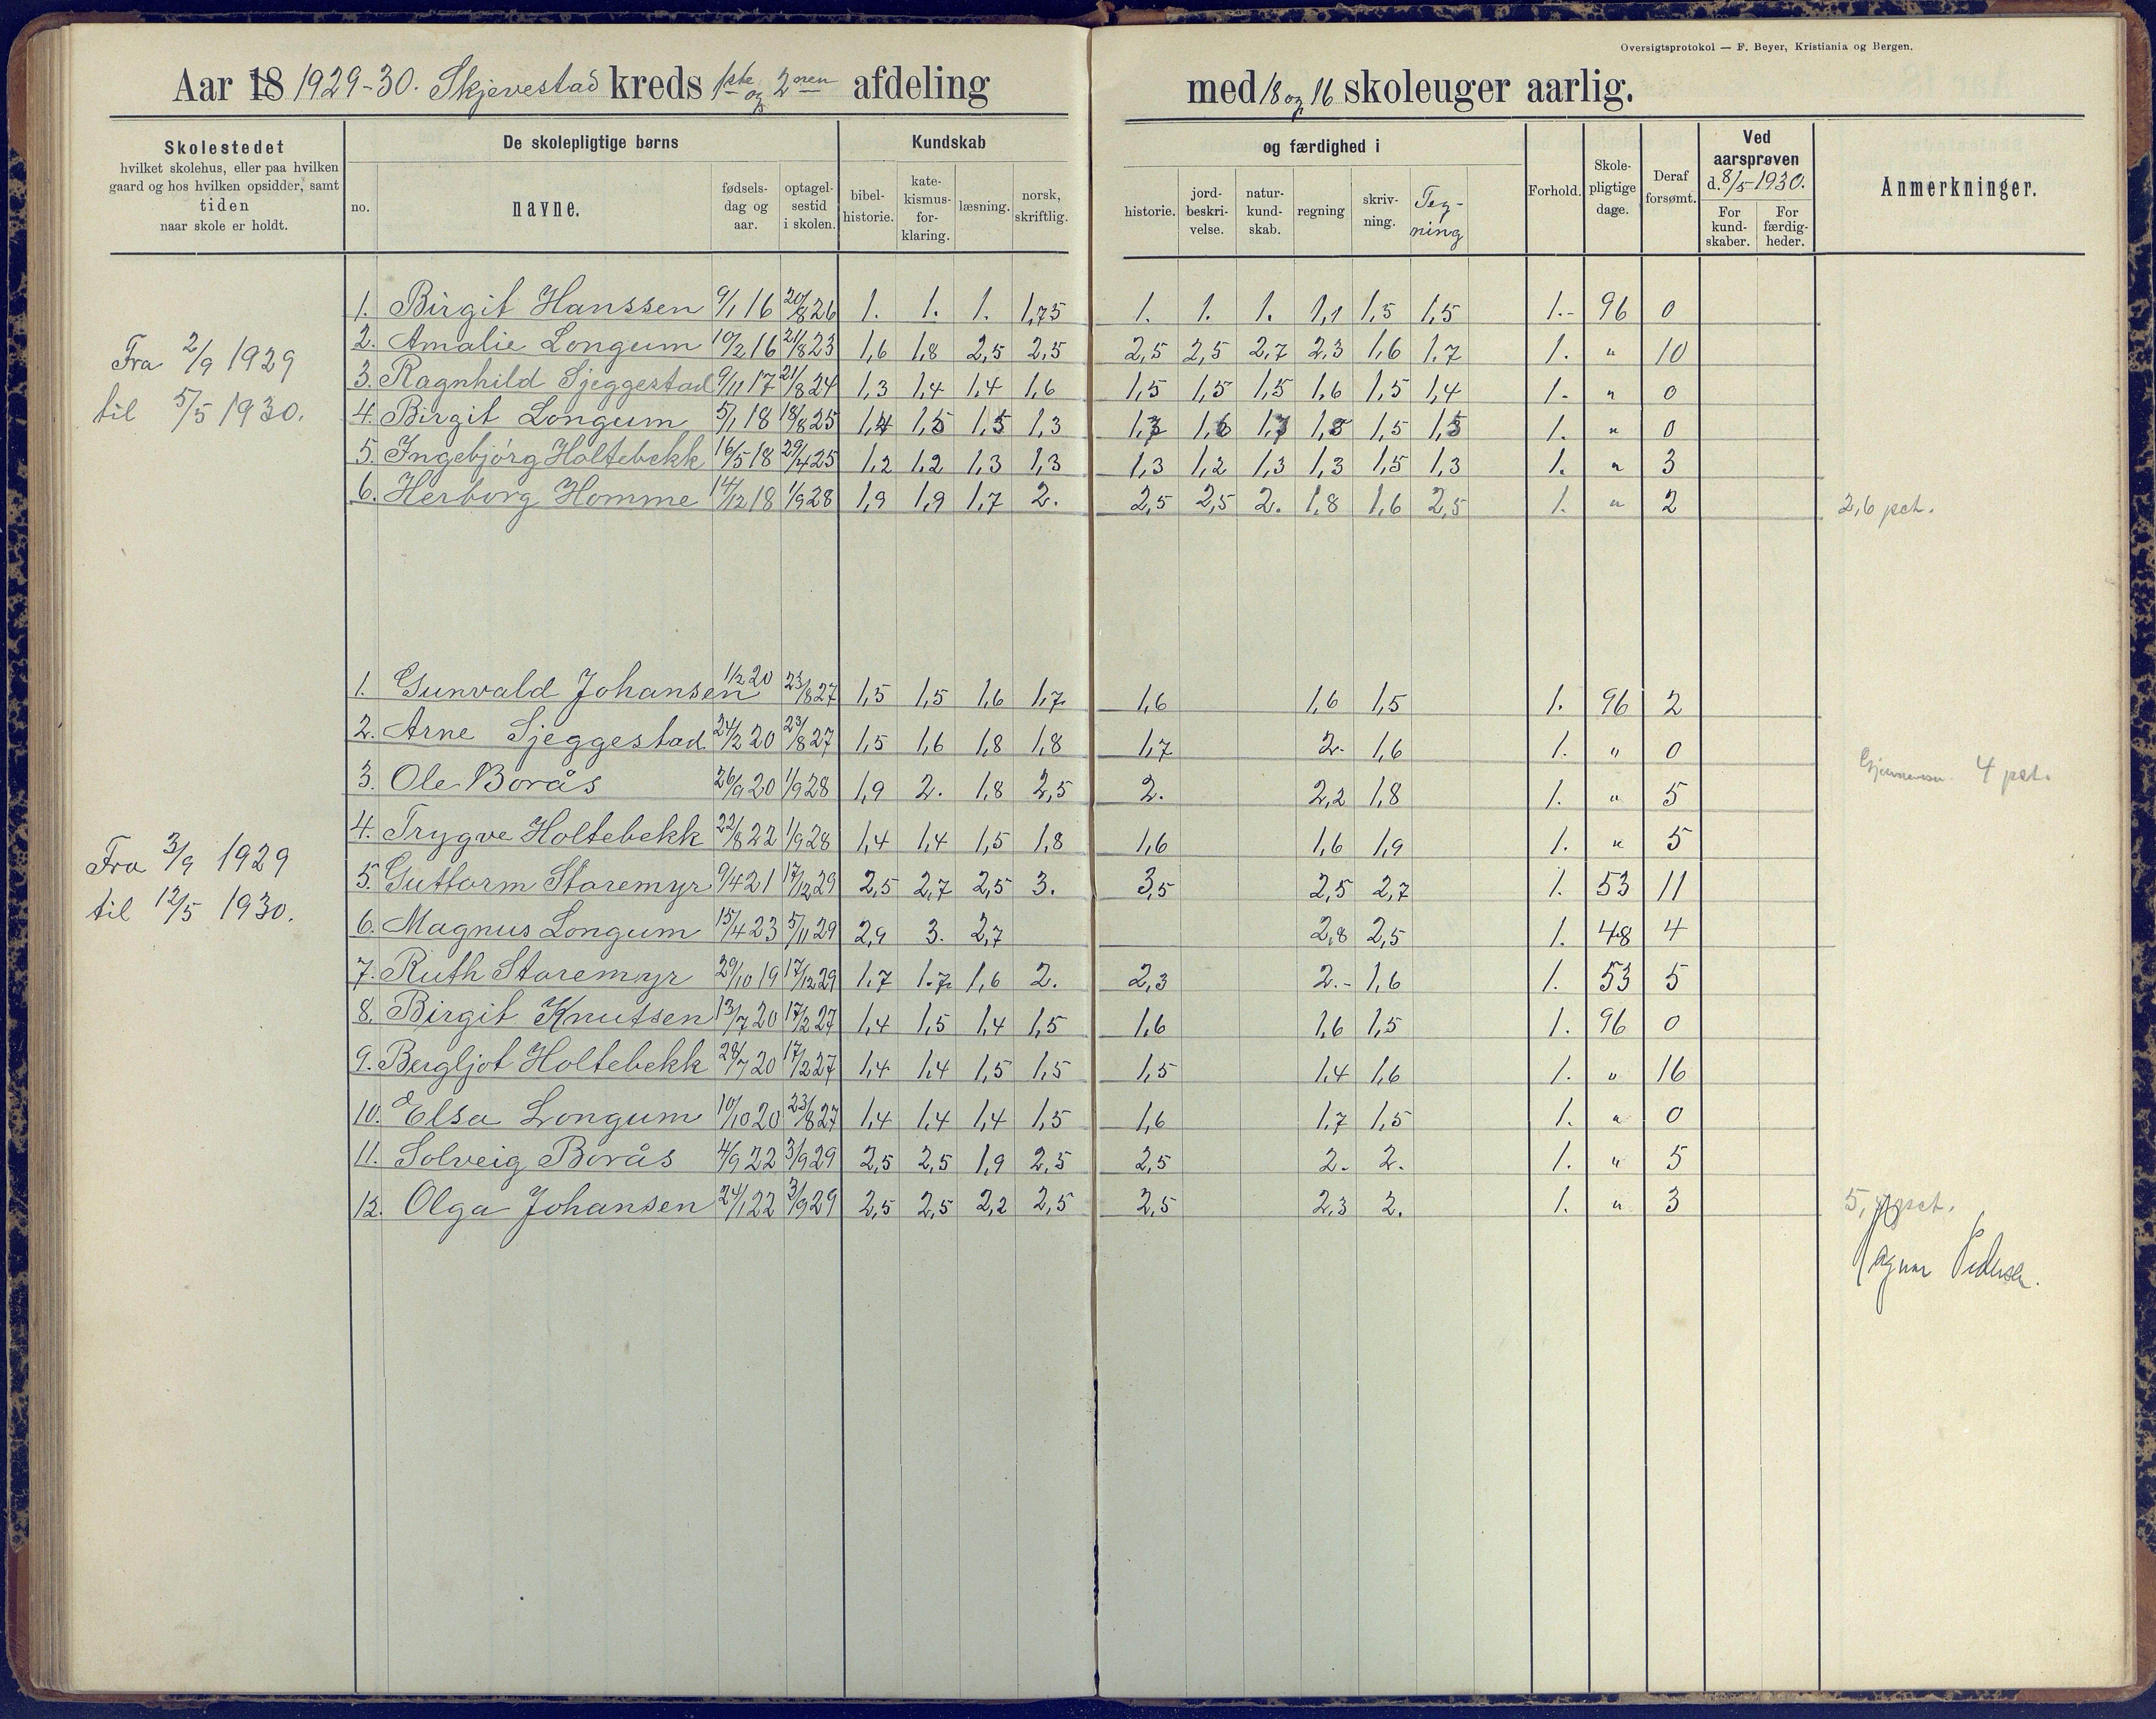 Oversigtsprotokol — F. Beyer, Kristiania og Bergen.
Aar 18 1929-30. Skjevestad kreds 1ste og 2nen afdeling med 18 og 16 skoleuger aarlig.
Skolestedet
hvilket skolehus, eller paa hvilken
gaard og hos hvilken opsidder, samt
tiden
naar skole er holdt.
De skolepligtige børns
no.
navne.
fødsels-
dag og
aar.
optagel-
sestid
i skolen.
Kundskab
bibel-
historie.
kate-
kismus-
for-
klaring.
læsning.
norsk,
skriftlig.
og færdighed i
historie.
jord-
beskri-
velse.
natur-
kund-
skab.
regning
skriv-
ning.
Teg-
ning
Forhold.
Skole-
pligtige
dage.
Deraf
forsømt.
Ved
aarsprøven
d. 8/5 1930.
For
kund-
skaber.
For
færdig-
heder.
Anmerkninger.
Fra 2/9 1929
til 5/5 1930.
1. Birgit Hanssen 9/1 16 20/8 26 1. 1. 1. 1,75 1. 1. 1. 1,1 1,5 1,5 1.- 96 0
2. Amalie Longum 10/2 16 21/8 23 1,6 1,8 2,5 2,5 2,5 2,5 2,7 2,3 1,6 1,7 1. " 10
3. Ragnhild Sjeggestad 9/11 17 21/8 24 1,3 1,4 1,4 1,6 1,5 1,5 1,5 1,6 1,5 1,4 1. " 0
4. Birgit Longum 5/1 18 18/8 25 1,4 1,5 1,5 1,3 1,3 1,6 1,3 1,5 1,5 1,5 1. " 0
5. Ingebjørg Holtebekk 16/5 18 29/4 25 1,2 1,2 1,3 1,3 1,3 1,2 1,3 1,3 1,5 1,3 1. " 3
6. Herborg Homme 14/12 18 1/9 28 1,9 1,9 1,7 2. 2,5 2,5 2. 1,8 1,6 2,5 1. " 2 2,6 pct.
Fra 3/9 1929
til 12/5 1930.
1. Gunvald Johansen 1/2 20 23/8 27 1,5 1,5 1,6 1,7 1,6 1,6 1,5 1. 96 2
2. Arne Sjeggestad 24/2 20 23/8 27 1,5 1,6 1,8 1,8 1,7 2. 1,6 1. " 0
4 pct.
3. Ole Borås 26/9 20 1/9 28 1,9 2. 1,8 2,5 2. 2,2 1,8 1. " 5
4. Trygve Holtebekk 22/8 22 1/9 28 1,4 1,4 1,5 1,8 1,6 1,6 1,9 1. " 5
5. Guttorm Staremyr 9/4 21 17/12 29 2,5 2,7 2,5 3. 3,5 2,5 2,7 1. 53 11
6. Magnus Longum 15/4 23 5/11 29 2,9 3. 2,7 2,8 2,5 1. 48 4
7. Ruth Staremyr 29/10 19 17/12 29 1,7 1.7 1,6 2. 2,3 2.- 1,6 1. 53 5
8. Birgit Knutsen 13/7 20 17/2 27 1,4 1,5 1,4 1,5 1,6 1,6 1,5 1. 96 0
9. Bergljot Holtebekk 28/7 20 17/2 27 1,4 1,4 1,5 1,5 1,5 1,4 1,6 1. " 16
10. Elsa Longum 10/10 20 23/8 27 1,4 1,4 1,4 1,5 1,6 1,7 1,5 1. " 0
11. Solveig Borås 4/9 22 3/9 29 2,5 2,5 1,9 2,5 2,5 2. 2. 1. " 5
12. Olga Johansen 24/1 22 3/9 29 2,5 2,5 2,2 2,5 2,5 2,3 2. 1. " 3 pct.
Ragnar Pedersen.